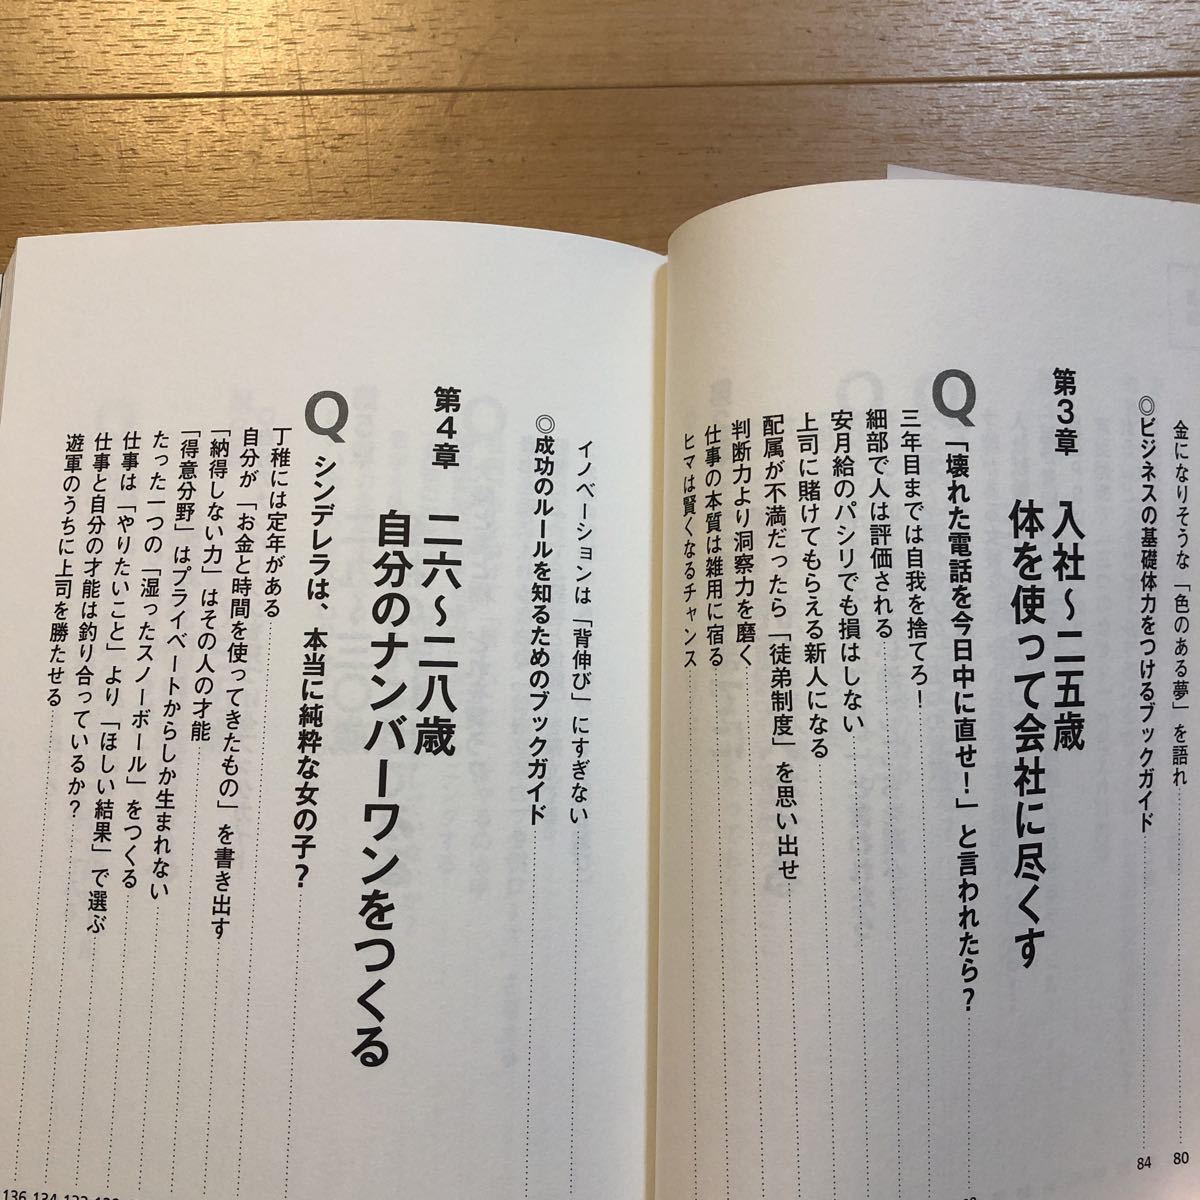 金になりそうな「色のある夢」を語れ
80
◎ビジネスの基礎体力をつけるブックガイド
84
第3章 入社～二五歳
体を使って会社に尽くす
Q 「壊れた電話を今日中に直せ！」と言われたら？
三年目までは自我を捨てろ！
細部で人は評価される
安月給のパシリでも損はしない
上司に賭けてもらえる新人になる
配属が不満だったら「徒弟制度」を思い出せ
判断力より洞察力を磨く
仕事の本質は雑用に宿る
ヒマは賢くなるチャンス
イノベーションは「背伸び」にすぎない
◎成功のルールを知るためのブックガイド
第4章 二六～二八歳
自分のナンバーワンをつくる
Q シンデレラは、本当に純粋な女の子？
丁稚には定年がある
自分が「お金と時間を使ってきたもの」を書き出す
「納得しない力」はその人の才能
「得意分野」はプライベートからしか生まれない
たった一つの「湿ったスノーボール」をつくる
仕事は「やりたいこと」より「ほしい結果」で選ぶ
仕事と自分の才能は釣り合っているか？
134
遊軍のうちに上司を勝たせる
136